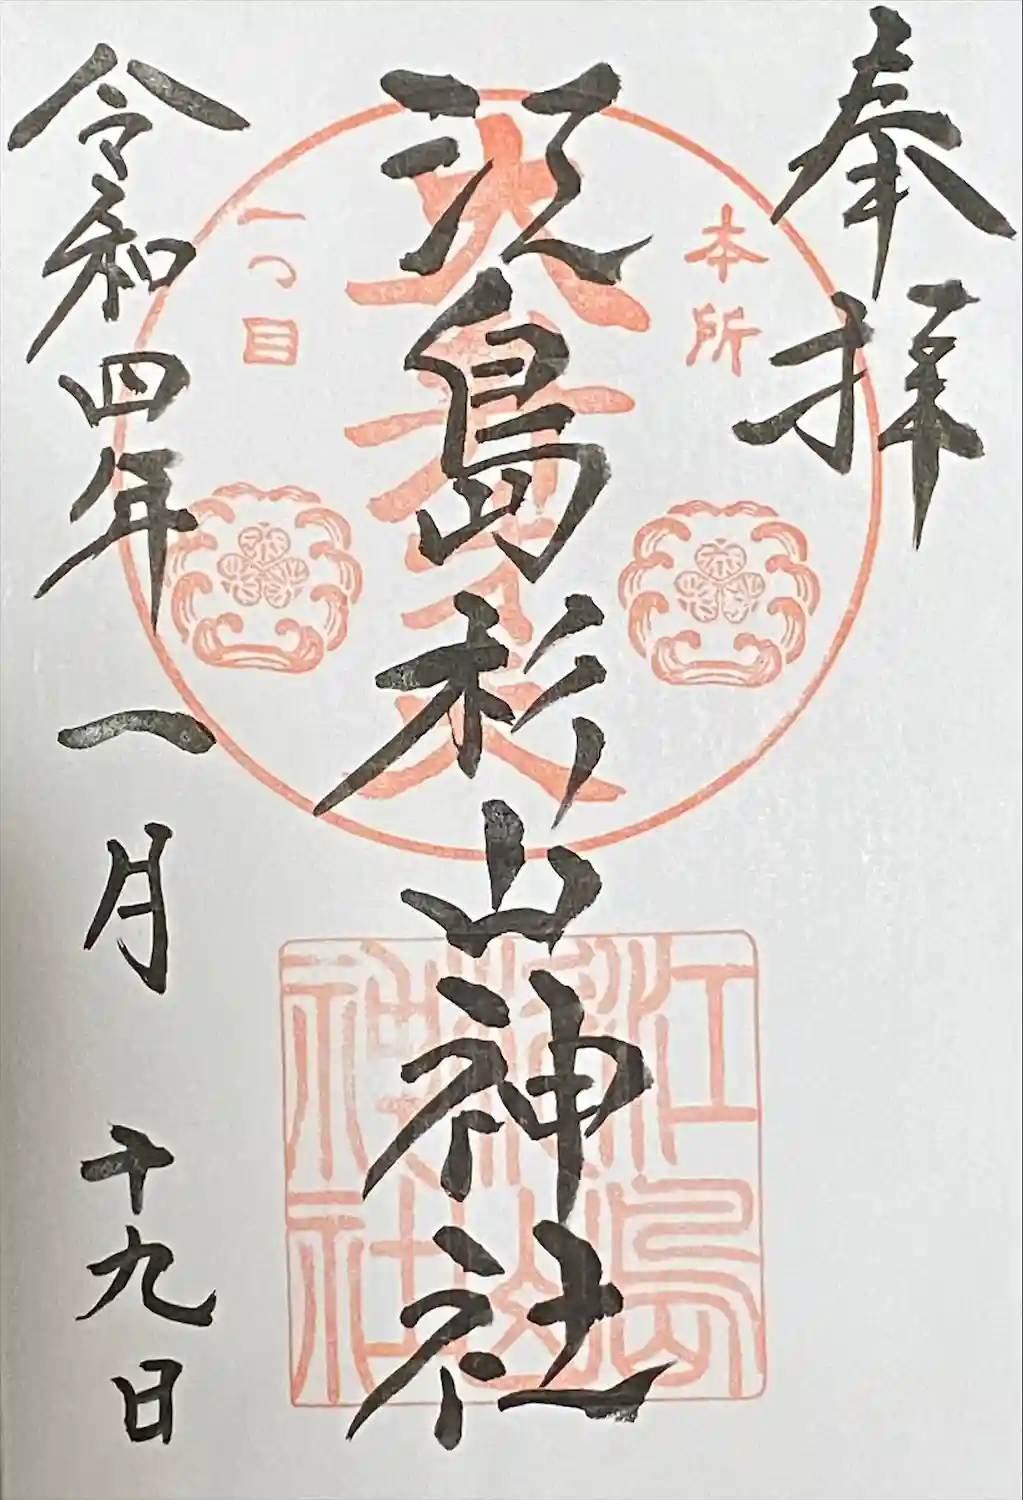 奉拝
本所
一つ目
大弁才天
江島杉山神社
江島
杉山
神社
令和四年一月十九日